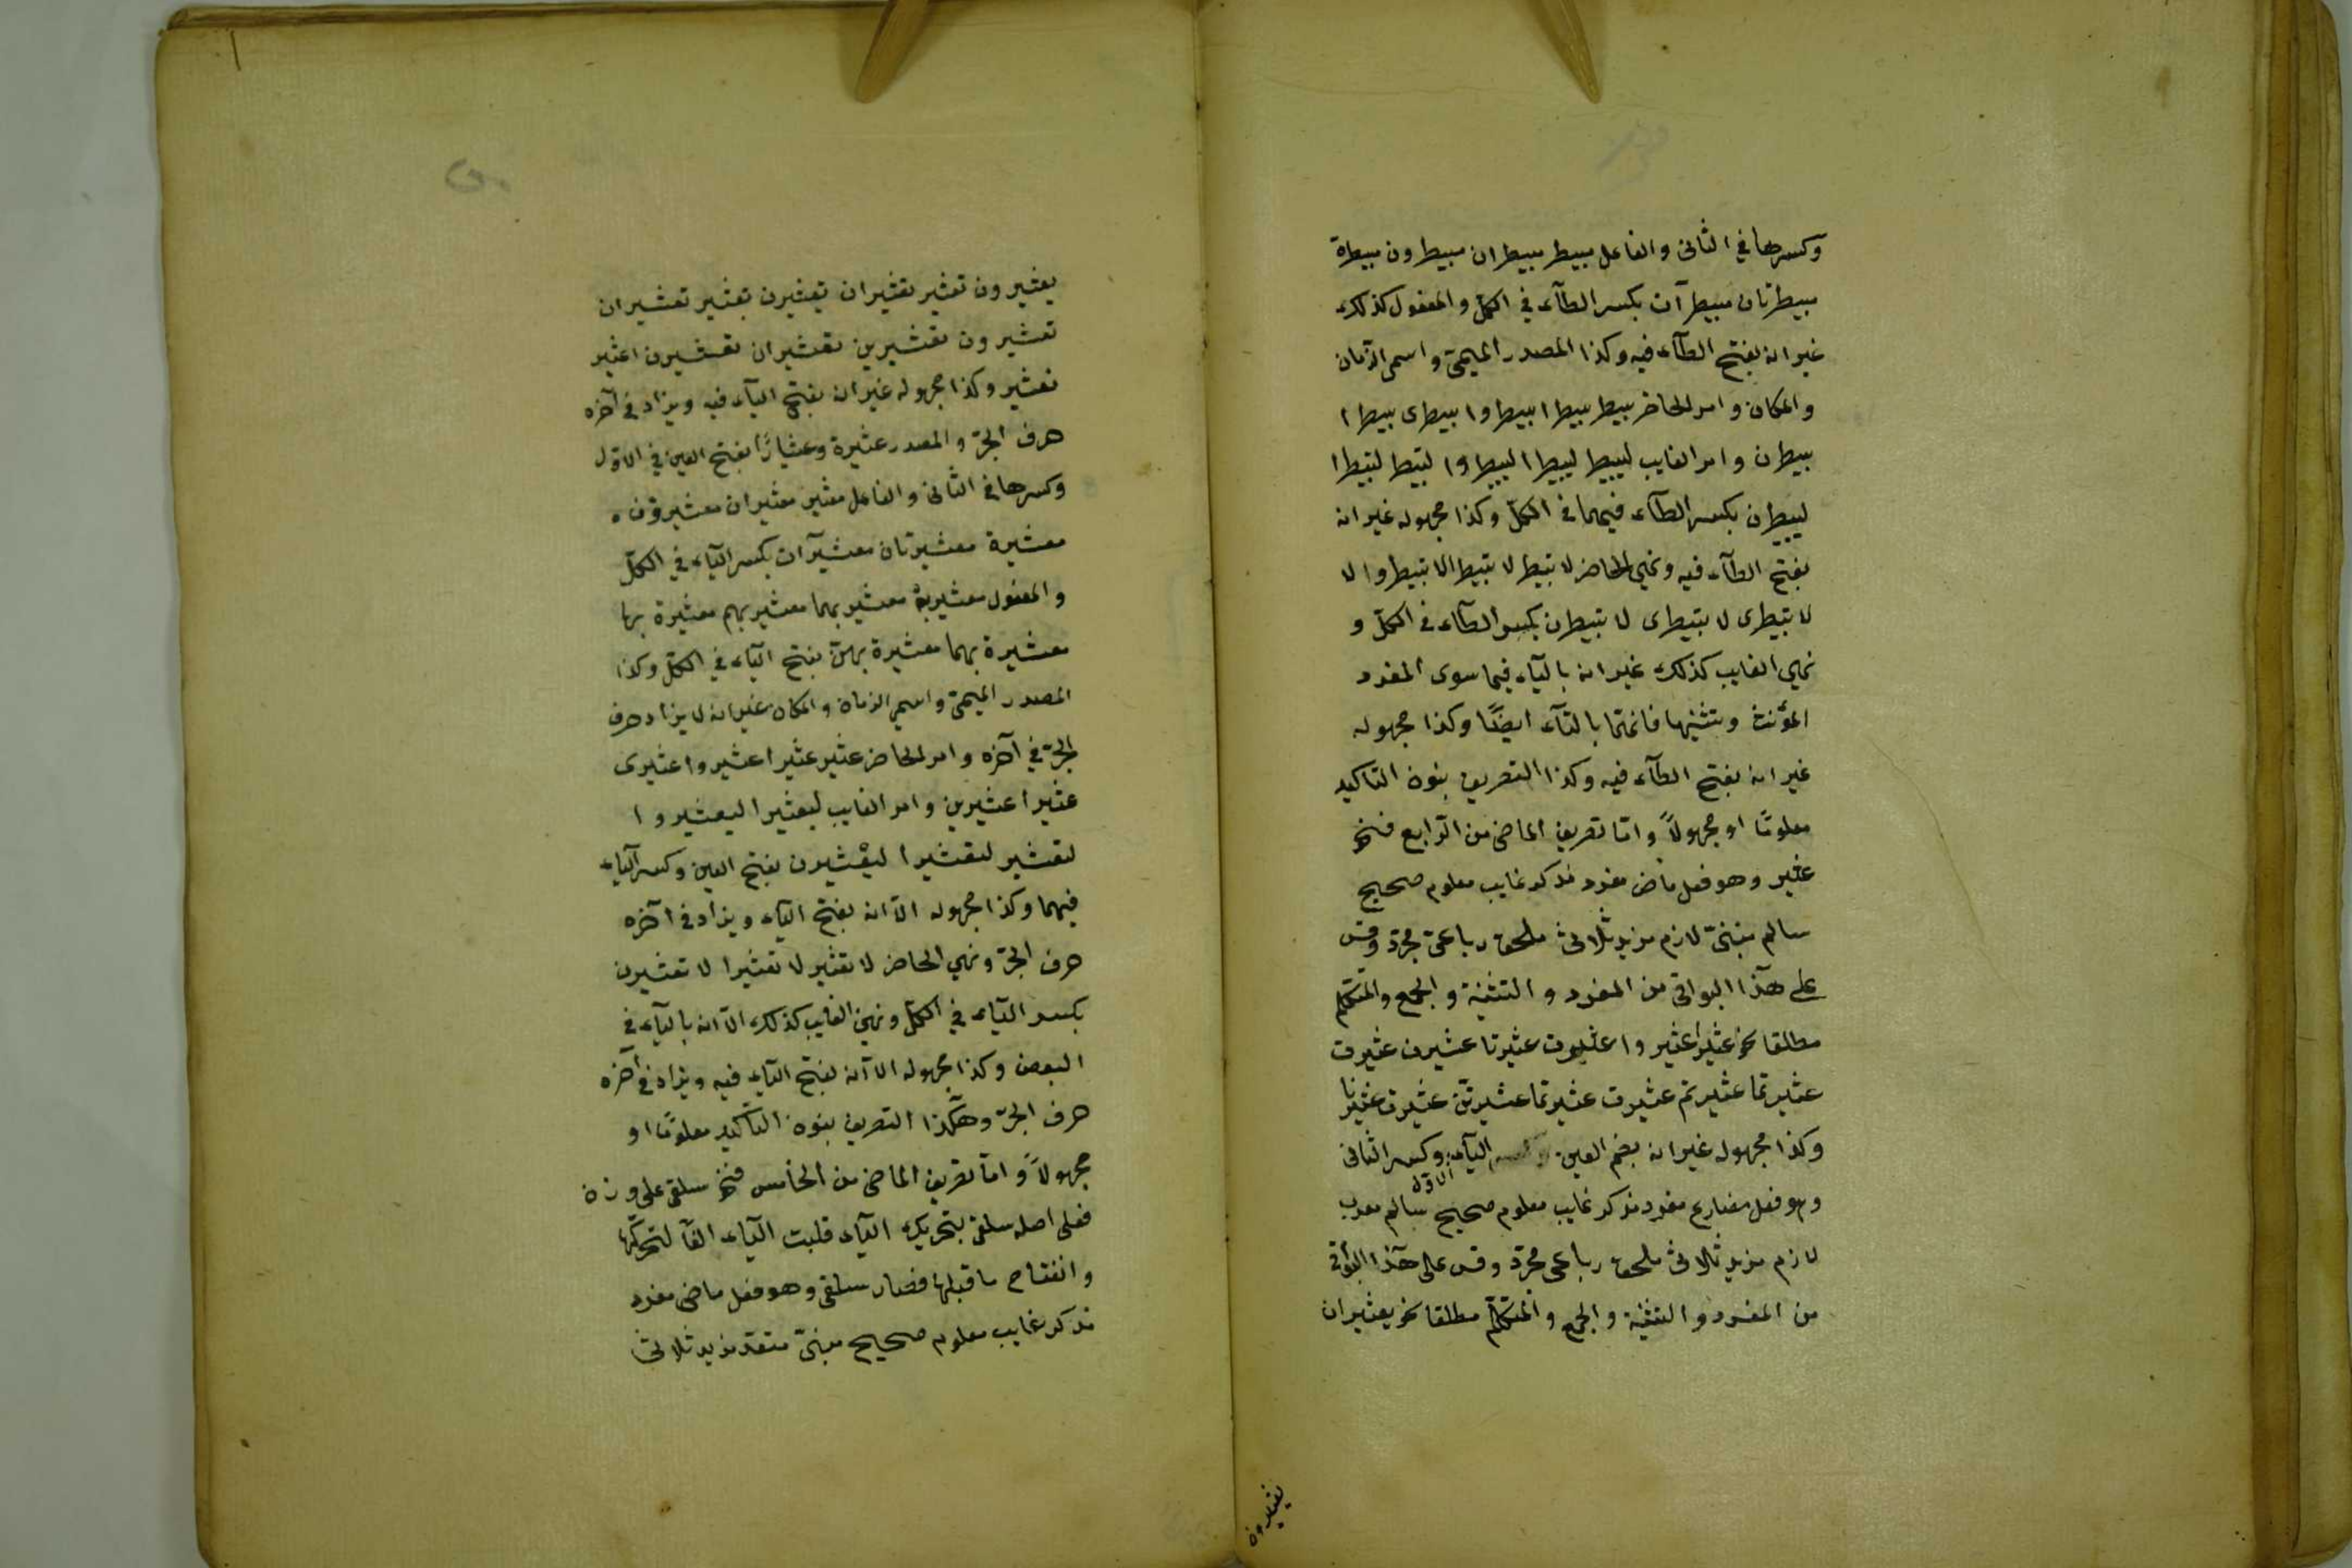 وكسرها في الثانى والفاعل مبيطر مبيطران مبيطرون مبيطرة
مبيطرتان مبيطرآت بكسر الطآء في الكلّ والمفعول كذلك
غير انه بفتح الطآء فيه وكذا المصدر الميمىّ واسمى الزمان
والمكان وامر الحاضر بيطر بيطرا بيطروا بيطرى بيطرا
بيطرن وامر الغايب ليبيطر ليبيطرا ليبيطروا لتبيطر لتبيطرا
ليبيطرن بكسر الطآء فيهما في الكلّ وكذا مجهوله غير انه
بفتح الطآء فيه ونهي الحاضر لا تبيطر لا تبيطرا لا تبيطروا لا
لا تبيطرى لا تبيطرى لا تبيطرن بكسر الطآء في الكلّ و
نهي الغايب كذلك غير انه باليآء فيما سوى المفرد
المؤنث وتثنيتها فانهما بالتآء ايضًا وكذا مجهوله
غير انه بفتح الطآء فيه وكذا التصريف بنون التاكيد
معلومًا او مجهولاً وامّا تصريف الماضى من الرّابع فنحو
عثير وهو فعل ماض مفرد مذكر غايب معلوم صحيح
سالم مبنىّ لازم مزيد ثلاثىّ ملحق رباعىّ مجرّد وقس
على هذآ البواقى من المفرد والتثنية والجمع والمتكلّم
مطلقا نحو عثيرا عثيروا عثيرت عثيرتا عثيرن عثيرت
عثيرتما عثيرتم عثيرت عثيرتما عثيرتنّ عثيرت عثيرنا
وكذا مجهوله غير انه بضم العين اليآء وكسر الثانى
الاوّل
وهو فعل مضارع مفرد مذكر غايب معلوم صحيح سالم معرب
لازم مزيد ثلاثىّ ملحق رباعى مجرّد وقس على هذآ البواقى
من المفرد والتثنية والجمع والمتكلّم مطلقا نحو يعثيران
يعثيرون
يعثيرون تعثير تعثيران يعثيرن تعثير تعثيران
تعثيرون تعثيرين تعثيران تعثيرن اعثير
نعثير وكذا مجهوله غير ان بفتح اليآء فيه ويزاد في آخره
حرف الجرّ والمصدر عثيرة وعثيارًا بفتح العين في الاوّل
وكسرها في الثانى والفاعل معثير معثيران معثيرون
معثيرة معثيرتان معثيرآت بكسر اليآء في الكلّ
والمفعول معثير به معثير بهما معثير بهم معثيرة بها
معثيرة بهما معثيرة بهنّ بفتح اليآء في الكلّ وكذا
المصدر الميمىّ واسمى الزمان والمكان غير انه لا يزاد حرف
الجرّ في آخره وامر الحاضر عثير عثيرا عثيروا عثيرى
عثيرا عثيرين وامر الغايب ليعثيرا ليعثيروا
لتعثير لتعثيرا ليعثيرن بفتح العين وكسر اليآء
فيهما وكذا مجهوله الاّ انه بفتح اليآء ويزاد في آخره
حرف الجرّ ونهي الحاضر لا تعثير لا تعثيرا لا تعثيرن
بكسر اليآء في الكلّ ونهى الغايب كذلك الاّ انه باليآء في
البعض وكذا مجهوله الاّ انه بفتح اليآء فيه ويزاد في آخره
حرف الجرّ وهكذا التصريف بنون التاكيد معلومًا او
مجهولاً وامّا تصريف الماضى من الخامس فنحو سلقى على وزن
فعلى اصله سلقى بتحريك اليآء قلبت اليآء الفًا لتحركها
وانفتاح ما قبلها فصار سلقى وهو فعل ماضى مفرد
مذكر غايب معلوم صحيح مبنىّ متعدّ مزيد ثلاثىّ